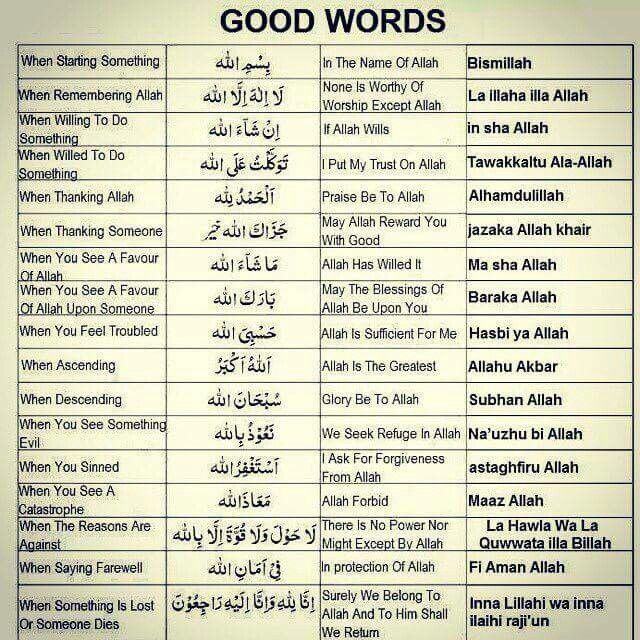 GOOD WORDS
When Starting Something بِسْمِ الله In The Name Of Allah Bismillah
When Remembering Allah لَا اِلٰهَ اِلَّا الله None Is Worthy Of
Worship Except Allah La illaha illa Allah
When Willing To Do
Something اِنْ شَآءَ الله If Allah Wills in sha Allah
When Willed To Do
Something تَوَكَّلْتُ عَلَى الله I Put My Trust On Allah Tawakkaltu Ala-Allah
When Thanking Allah اَلْحَمْدُ لِلّٰه Praise Be To Allah Alhamdulillah
When Thanking Someone جَزَاكَ الله خَيْر May Allah Reward You
With Good jazaka Allah khair
When You See A Favour
Of Allah مَا شَآءَ الله Allah Has Willed It Ma sha Allah
When You See A Favour
Of Allah Upon Someone بَارَكَ الله May The Blessings Of
Allah Be Upon You Baraka Allah
When You Feel Troubled حَسْبِيَ الله Allah Is Sufficient For Me Hasbi ya Allah
When Ascending اَللهُ اَكْبَرُ Allah Is The Greatest Allahu Akbar
When Descending سُبْحَانَ الله Glory Be To Allah Subhan Allah
When You See Something
Evil نَعُوْذُ بِالله We Seek Refuge In Allah Na'uzhu bi Allah
When You Sinned اَسْتَغْفِرُ الله I Ask For Forgiveness
From Allah astaghfiru Allah
When You See A
Catastrophe مَعَاذَ الله Allah Forbid Maaz Allah
When The Reasons Are
Against لَا حَوْلَ وَلَا قُوَّةَ اِلَّا بِالله There Is No Power Nor
Might Except By Allah La Hawla Wa La
Quwwata illa Billah
When Saying Farewell فِيْ اَمَانِ الله In protection Of Allah Fi Aman Allah
When Something Is Lost
Or Someone Dies اِنَّا لِلّٰهِ وَاِنَّا اِلَيْهِ رَاجِعُوْنَ Surely We Belong To
Allah And To Him Shall
We Return Inna Lillahi wa inna
ilaihi raji'un